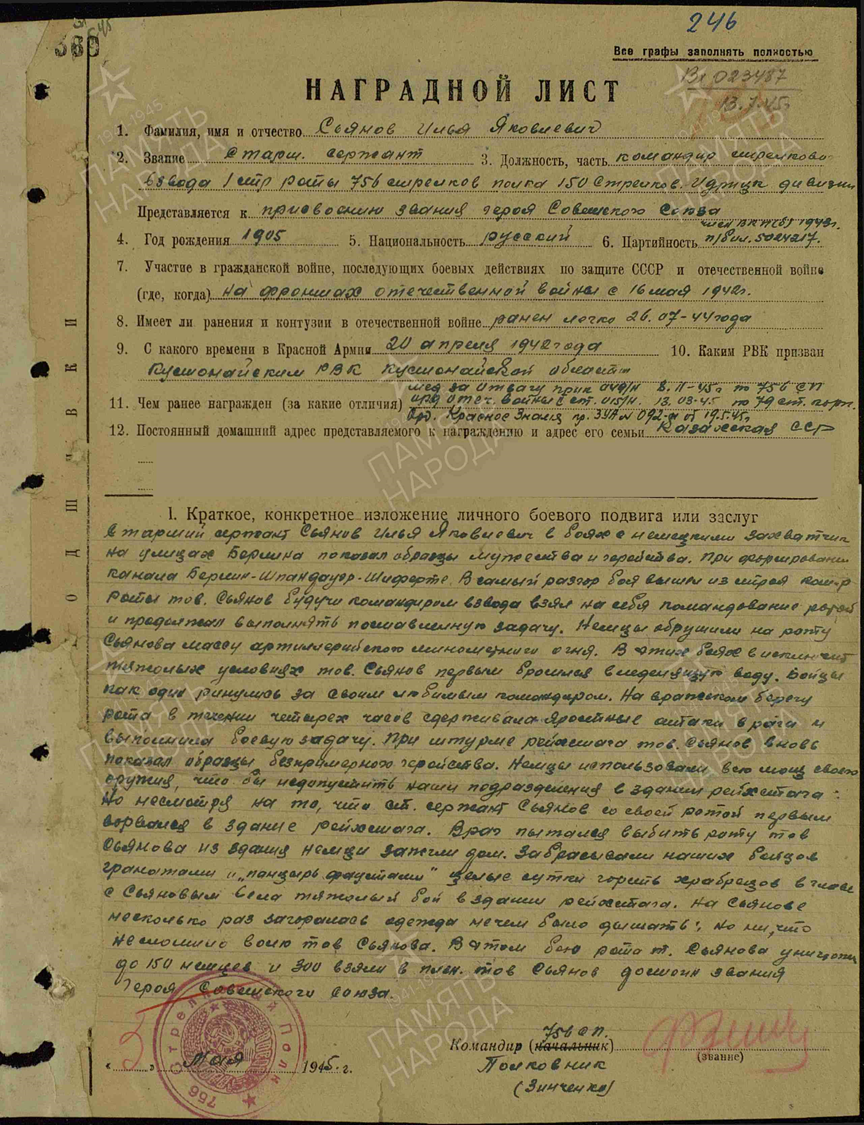 360
246
Все графы заполнять полностью
Вх 023487
13.7.45г
НАГРАДНОЙ ЛИСТ
1. Фамилия, имя и отчество Сьянов Илья Яковлевич
2. Звание Старш. сержант 3. Должность, часть командир стрелково
взвода 1 стр роты 756 стрелков полка 150 Стрелков. Идрицк дивизии
Представляется к присвоению звания героя Советского Союза
член ВКП(б) 1942г.
4. Год рождения 1905 5. Национальность русский 6. Партийность п/бил. 5024217.
7. Участие в гражданской войне, последующих боевых действиях по защите СССР и отечественной войне
(где, когда) на фронтах отечественной войны с 16 мая 1942г.
8. Имеет ли ранения и контузии в отечественной войне ранен легко 26.07-44 года
9. С какого времени в Красной Армии 20 апреля 1942 года 10. Каким РВК призван
Кустонайским РВК Кустонайской области
мед за отвагу прик 04д/н 8.11-45г по 756 СП
11. Чем ранее награжден (за какие отличия) орд отеч. войны 2 ст. 015/н. 13.03-45 по 79 ст. корп.
Ор. Красное Знамя пр. 3УА № 092-н от 19.5.45г
12. Постоянный домашний адрес представляемого к награждению и адрес его семьи Казахская ССР
I. Краткое, конкретное изложение личного боевого подвига или заслуг
Старший сержант Сьянов Илья Яковлевич в боях с немецкими захватчик
на улицах Берлина показал образцы мужества и геройства. При форсировании
канала Берлин-Шпандауэр-Шифорте. В самый разгар боя вышел из строя кам-р
роты тов. Сьянов будучи командиром взвода взял на себя командование ротой
и продолжал выполнять поставленную задачу. Немцы обрушили на роту
Сьянова массу артиллерийского минометного огня. В этих боях в исключит
тяжолых условиях тов. Сьянов первым бросился в ледянящую воду. Бойцы
как один ринулись за своим любимым командиром. На вражеском берегу
рота в течении четырех часов сдерживала яростные атаки врага и
выполнила боевую задачу. При штурме рейхстага тов. Сьянов вновь
показал образцы безпримерного геройства. Немцы использовали всю мощ своего
оружия, что бы недопустить наши подразделения в здании рейхстага.
Но несмотря на то, что ст. сержант Сьянов со своей ротой первым
ворвался в здание рейхстага. Враг пытался выбить роту тов
Сьянова из здания немцы зажгли дом. Забрасывали наших бойцов
гранатами и "панцырь фаустами" целые сутки горсть храбрецов в главе
с Сьяновым вела тяжолый бой в здании рейхстага. На Сьянове
несколько раз загоралась одежда нечем было дышать, но ни, что
несломило волю тов Сьянова. В этом бою рота т. Сьянова уничтож
до 150 немцев и 300 взяли в плен. тов Сьянов достоин звания
Героя Советского союза.
756 СП.
Командир (начальник)
(звание)
5 мая 1945 г.
Полковник
(Зинченко)
756 Стрелковый Полк
ПОДШИВКИ
ПАМЯТЬ НАРОДА